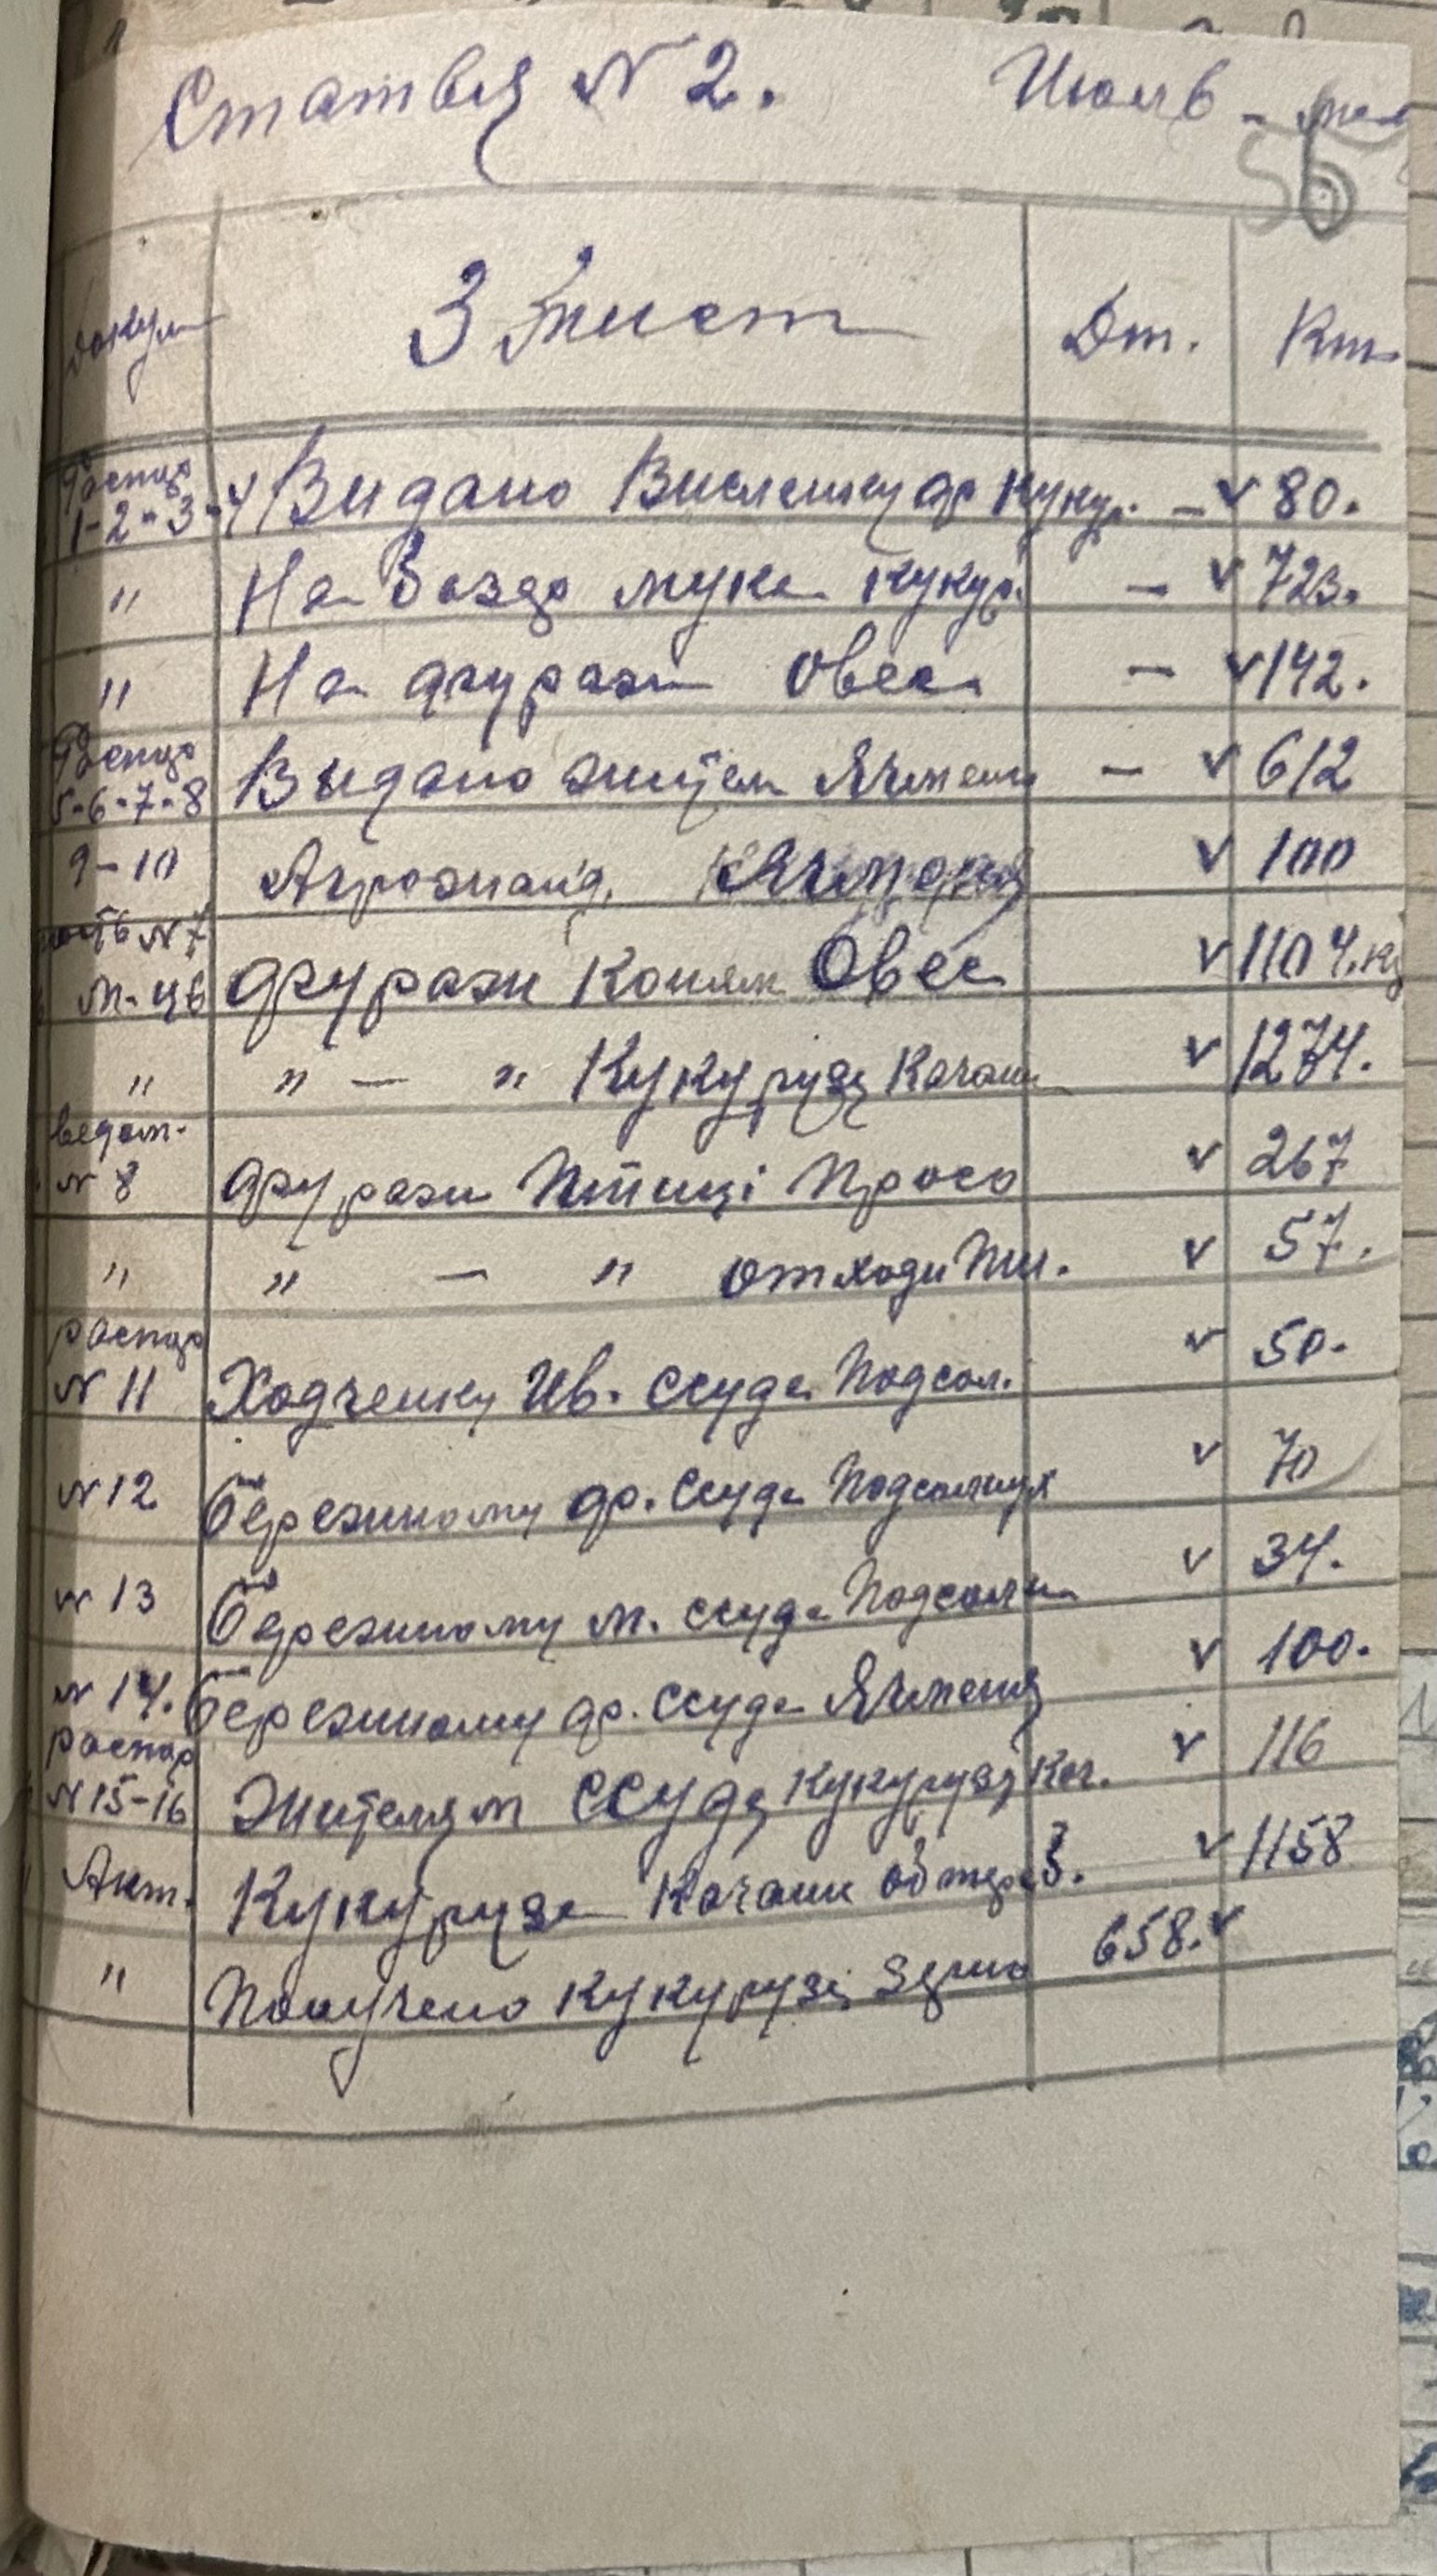 Статья N 2. Июль - м-ц
56
Докум Зміст Дт. Кт.
Распор 1-2-3-4 Видано Висленку ф кукур. - v 80.
" На Возд мука кукур. - v 723.
" На фураж Овес - v 142.
Распор 5-6-7-8 Видано жител Ячменю - v 612
9-10 Ячменя v 100
N 7 М-цъ фураж Коням Овес v 1104.кг
" " — " Кукурузы Качани v 1274.
ведом. N 8 фураж Птиці Просо v 267
" " — " отходи Пш. v 57.
распор N 11 Ходченку Ив. Ссуда Подсол. v 50.
N 12 Березиному ф. Ссуда Подсолнух v 70
N 13 Березиному м. ссуда Подсолн v 34.
N 14. Березиному ф. Ссуда Ячменя v 100.
распор N 15-16 Жителям ССуда Кукурузы Кач. v 116
Акт. Кукуруза Качани v 1158
" Получено Кукурузы Зерно 658. v